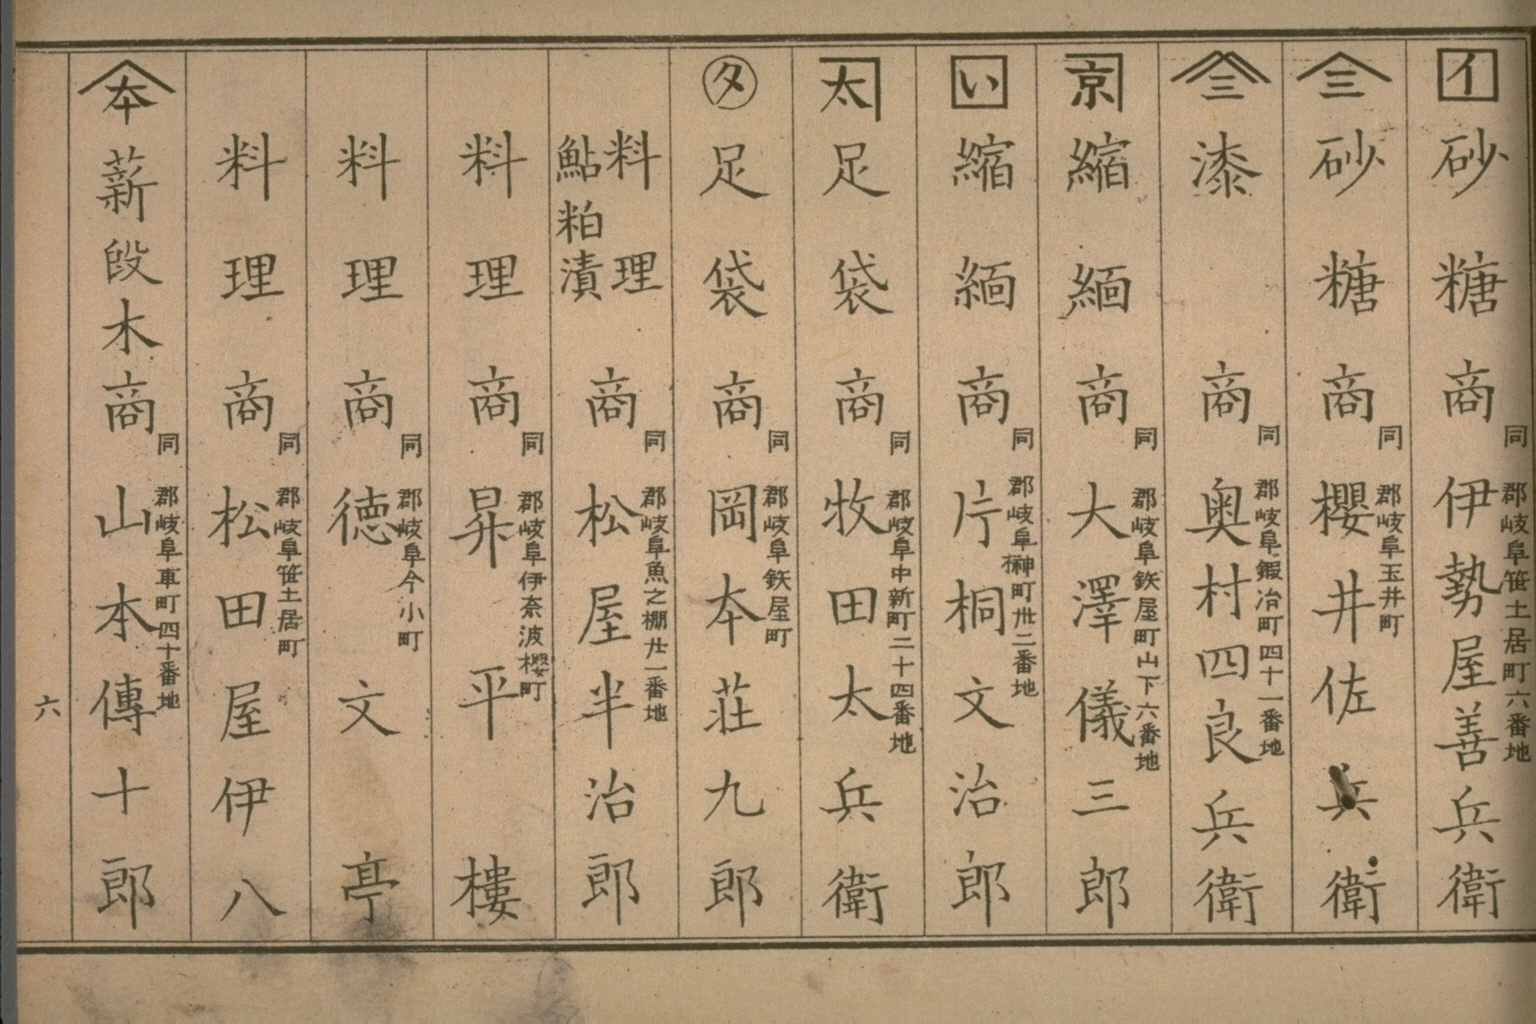 イ 砂糖商 同郡岐阜笹土居町六番地 伊勢屋善兵衛
三 砂糖商 同郡岐阜玉井町 櫻井佐兵衛
三 漆商 同郡岐阜鍜冶町四十一番地 奥村四良兵衛
京 縮緬商 同郡岐阜鉄屋町山下六番地 大澤儀三郎
い 縮緬商 同郡岐阜榊町卅二番地 片桐文治郎
太 足袋商 同郡岐阜中新町二十四番地 牧田太兵衛
タ 足袋商 同郡岐阜鉄屋町 岡本荘九郎
料理鮎粕漬商 同郡岐阜魚之棚廿一番地 松屋半治郎
料理商 同郡岐阜伊奈波櫻町 昇平樓
料理商 同郡岐阜今小町 徳文亭
料理商 同郡岐阜笹土居町 松田屋伊八
本 薪段木商 同郡岐阜車町四十番地 山本傳十郎
六